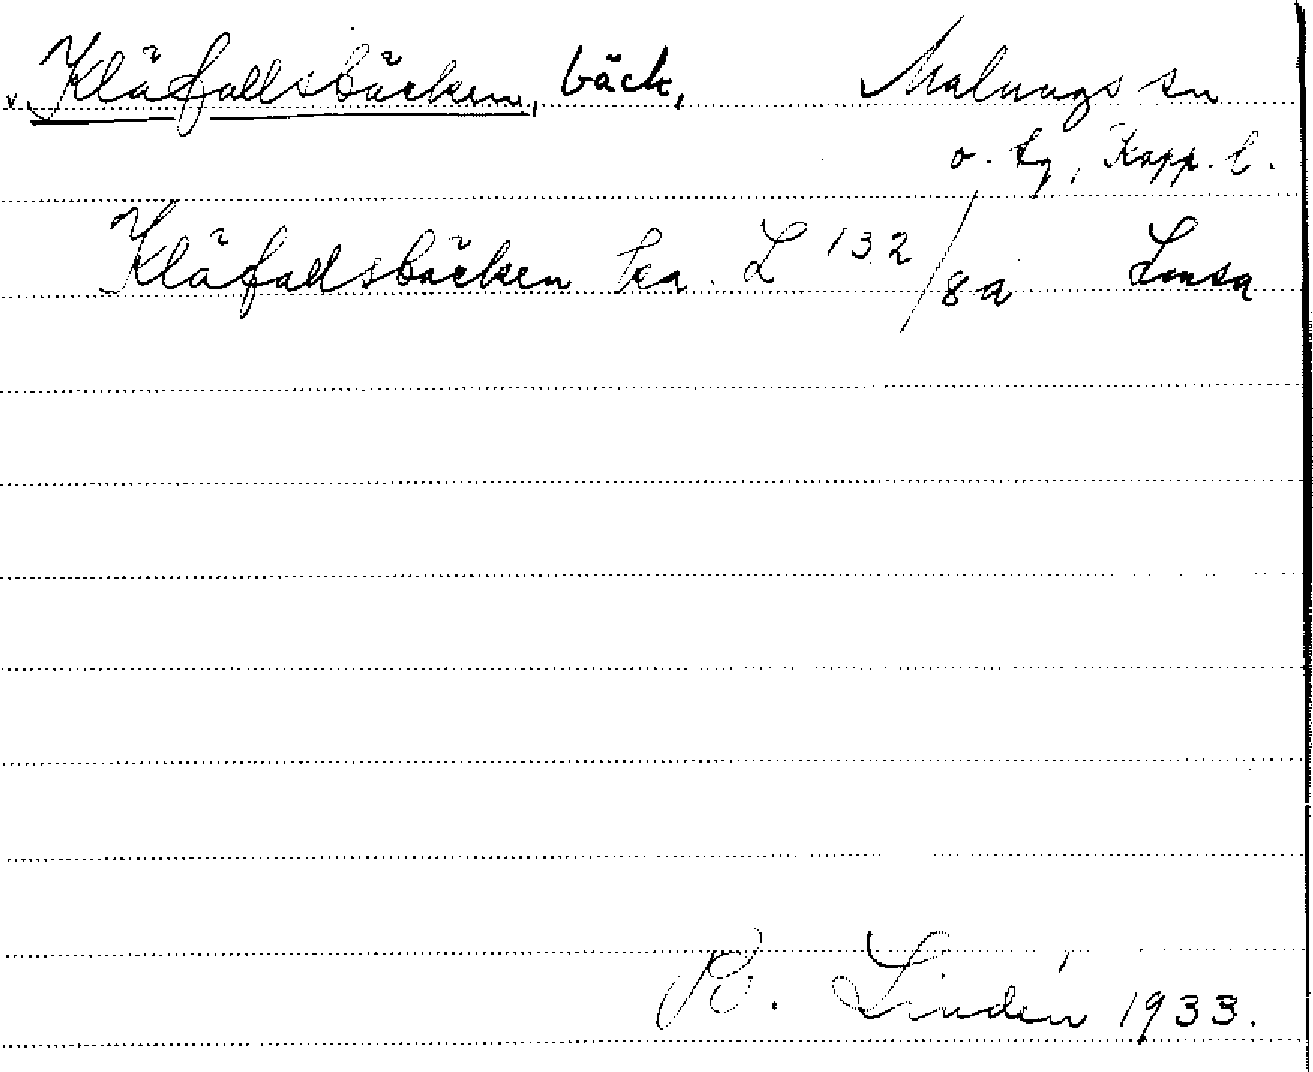 Kläfallsbäcken, bäck, Malungs sn
o. tg, Kopp. l.
Kläfallsbäcken ka. L 132/8a Lensa
B. Lindén 1933.